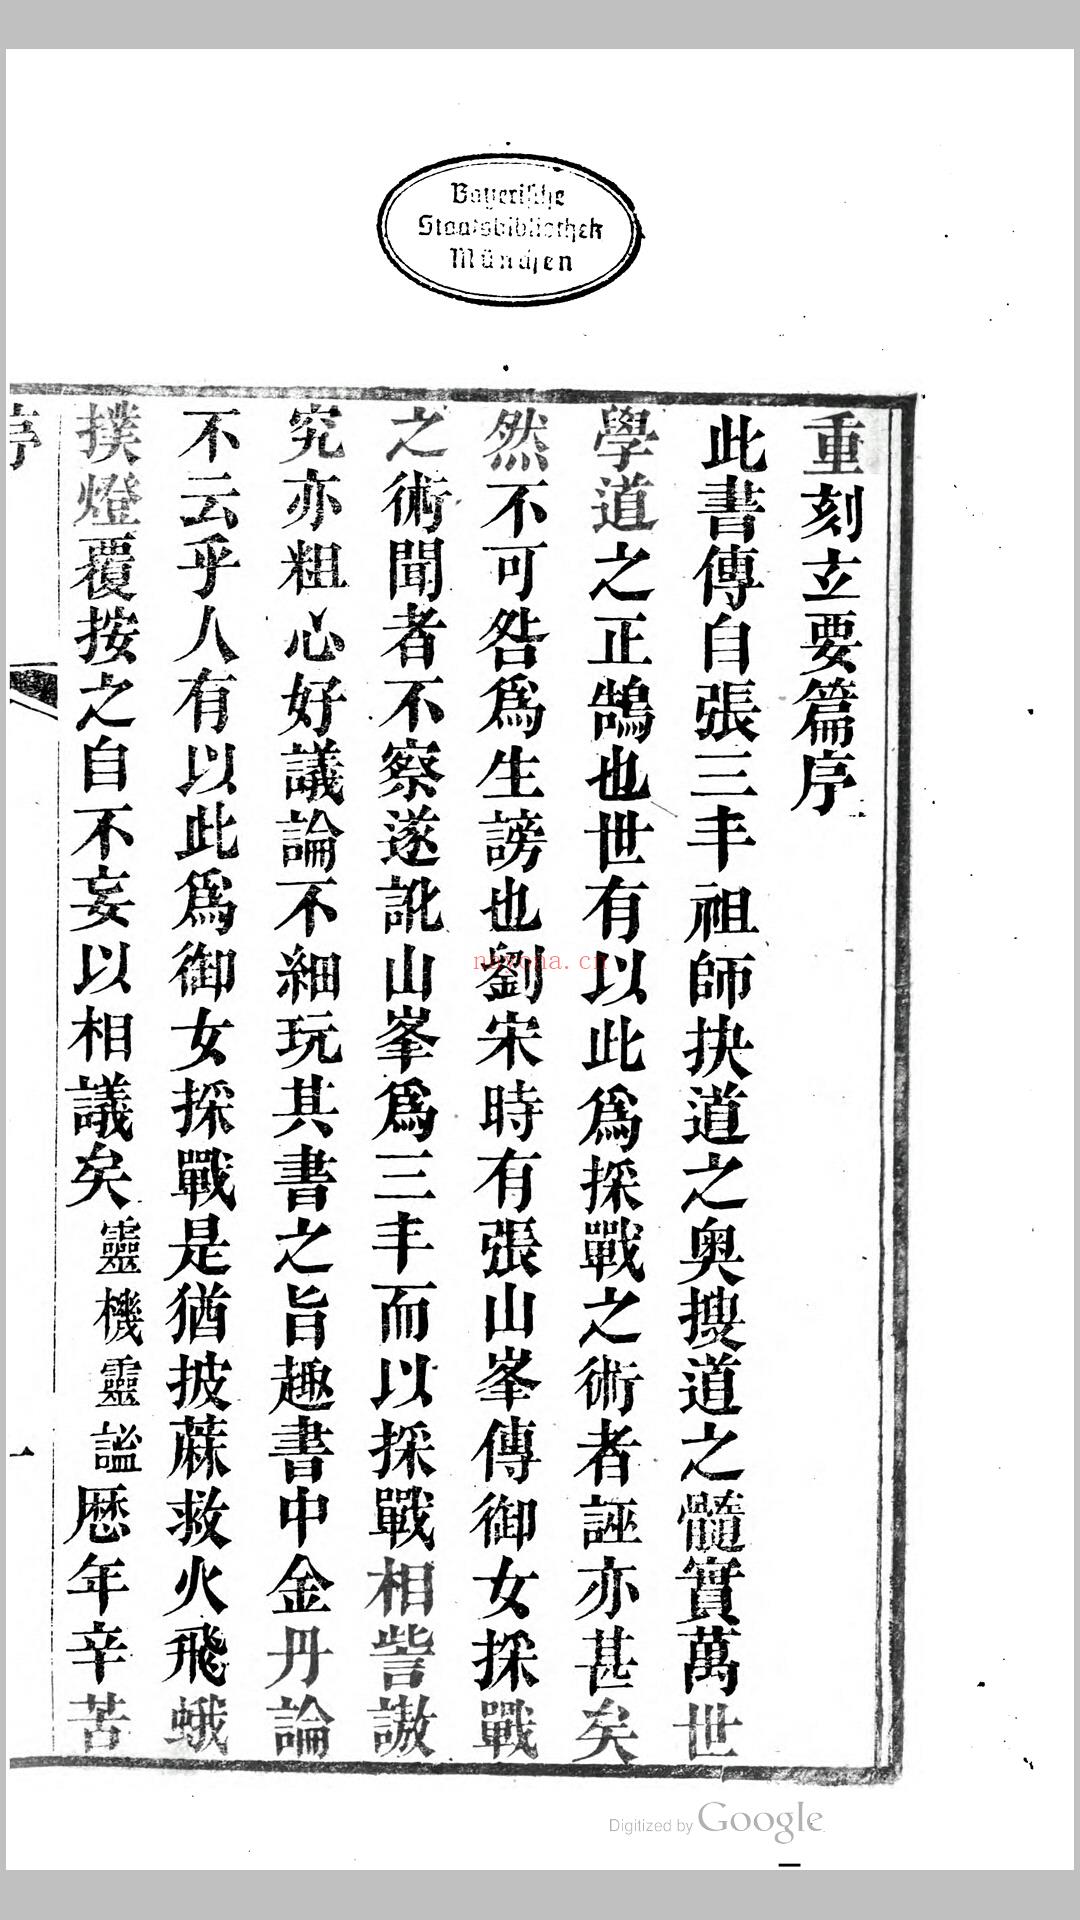 Bayerische
Staatsbibliothek
München
重刻玄要篇序
此書傳自張三丰祖師抉道之奥搜道之髓實萬世
學道之正鵠也世有以此爲採戰之術者誣亦甚矣
然不可咎爲生謗也劉宋時有張山峯傳御女採戰
之術聞者不察遂訛山峯爲三丰而以採戰相訾謷
究亦粗心好議論不細玩其書之旨趣書中金丹論
不云乎人有以此爲御女採戰是猶披蔴救火飛蛾
撲燈覆按之自不妄以相議矣靈機靈謐歴年辛苦
序
一
nayona.cn
Digitized by Google